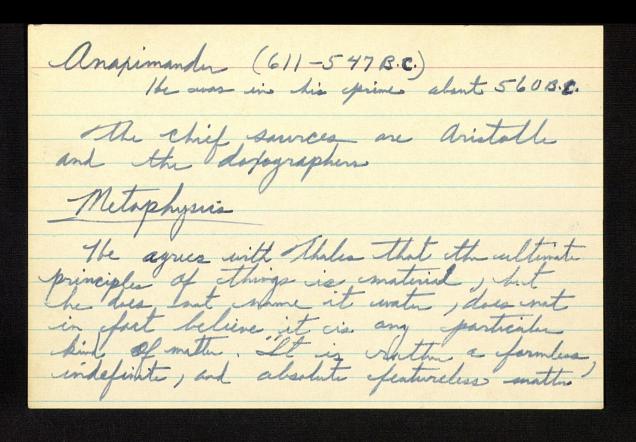 Anaximander (611-547 B.C.)
He was in his prime about 560 B.C.
The chief sources are Aristotle
and the doxographers
Metaphysics
He agrees with Thales that the ultimate
principles of things is material, but
he does not name it water, does not
in fact believe it is any particular
kind of matter. "It is rather a formless,
indefinite, and absolute featureless matter